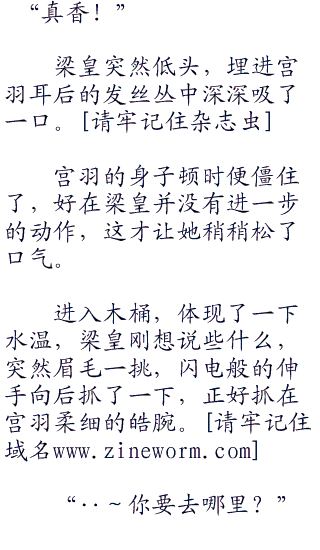 “真香！”
梁皇突然低头，埋进宫
羽耳后的发丝丛中深深吸了
一口。[请牢记住杂志虫]
宫羽的身子顿时便僵住
了，好在梁皇并没有进一步
的动作，这才让她稍稍松了
口气。
进入木桶，体现了一下
水温，梁皇刚想说些什么，
突然眉毛一挑，闪电般的伸
手向后抓了一下，正好抓在
宫羽柔细的皓腕。[请牢记住
域名www.zineworm.com]
“··～你要去哪里？”